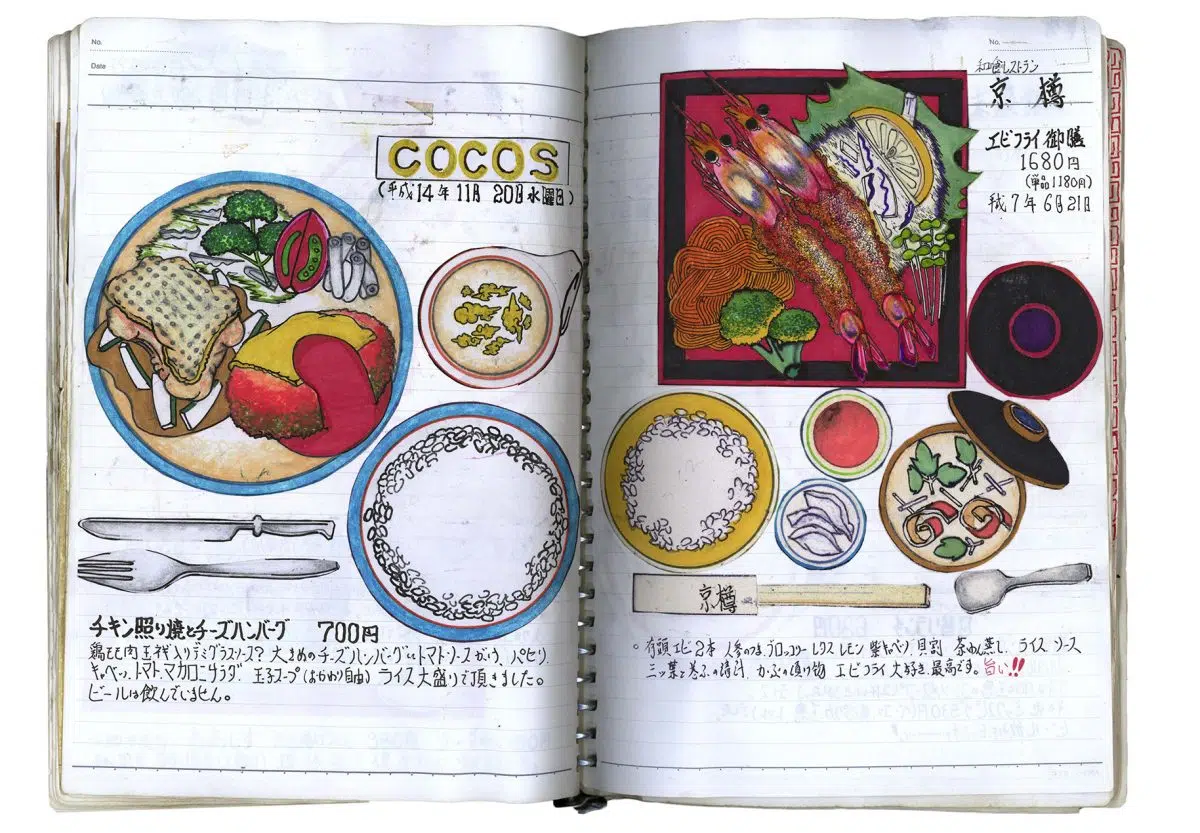 No.
Date
COCOS
(平成14年11月20日水曜日)
チキン照り焼とチーズハンバーグ 700円
鶏もも肉玉ネギ入りデミグラスソース? 大きめのチーズハンバーグにトマトソース パセリ
キャベツ、トマト、マカロニサラダ 玉子スープ(おかわり自由) ライス大盛りで頂きました。
ビールは飲んでいません。
No.
和食レストラン
京樽
エビフライ御膳
1680円
(単品1180円)
7年6月21日
京樽
。有頭エビ2本 人参のつま ブロッコリー レタス レモン 紫キャベツ 貝割 茶わん蒸し ライス ソース
三ッ葉と かぶの漬け物 エビフライ大好き、最高です。旨い!!